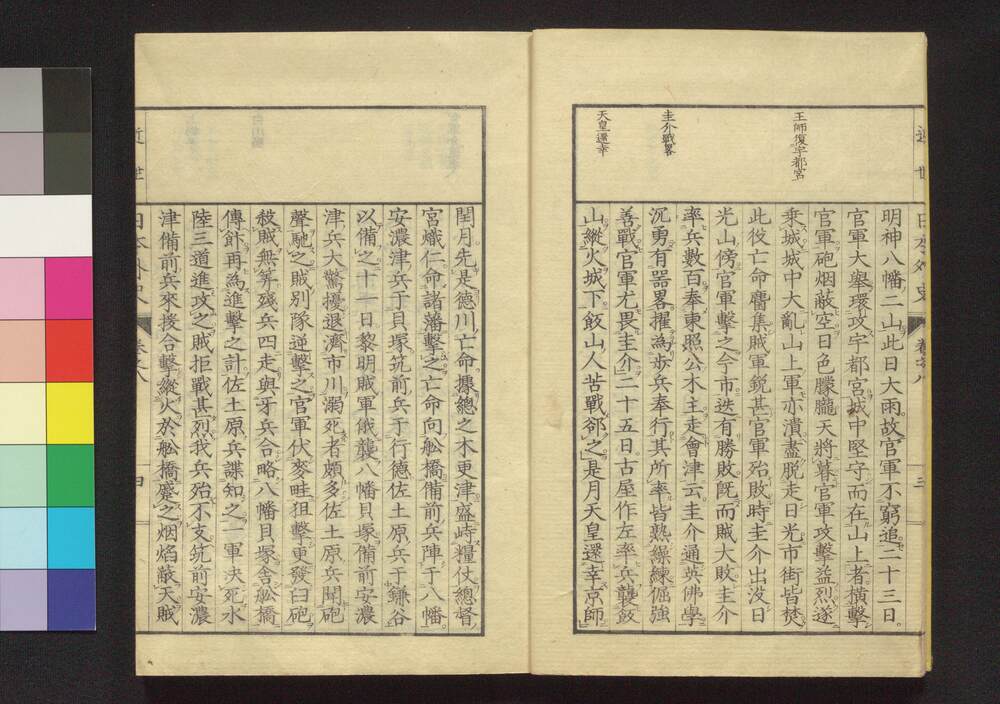 王師復宇都宮
圭介戰畧
天皇還幸
明神八幡二山此日大雨故官軍不窮追二十三日
官軍大舉環攻宇都宮城中堅守而在山上者橫擊
官軍砲烟蔽空日色朦朧天將暮官軍攻擊益烈遂
乘城城中大亂山上軍亦潰盡脫走日光市街皆焚
此役亡命麕集賊軍銳甚官軍殆敗時圭介出沒日
光山傍官軍擊之今市迭有勝敗既而賊大敗圭介
率兵數百奉東照公木主走會津云圭介通英佛學
沉勇有器畧擢為步兵奉行其所率皆熟練倔強
善戰官軍尤畏圭介二十五日古屋作左率兵襲飯
山縱火城下飯山人苦戰郤之是月天皇還幸京師
閏月先是德川亡命據總之木更津盛峙糧仗總督
宮熾仁命諸藩擊之亡命向舩橋備前兵陣于八幡
安濃津兵于貝塚筑前兵于行德佐土原兵于鎌谷
以備之十一日黎明賊軍俄襲八幡貝塚備前安濃
津兵大驚擾退濟市川溺死者頗多佐土原兵聞砲
聲馳之賊別隊逆擊之官軍伏麥畦狙擊更發臼砲
殺賊無筭殘兵四走與牙兵合略八幡貝塚舍舩橋
傳飰再為進擊之計佐土原兵諜知之一軍決死水
陸三道進攻之賊拒戰甚烈我兵殆不支筑前安濃
津備前兵來援合擊縱火於舩橋蹙之烟焰蔽天賊